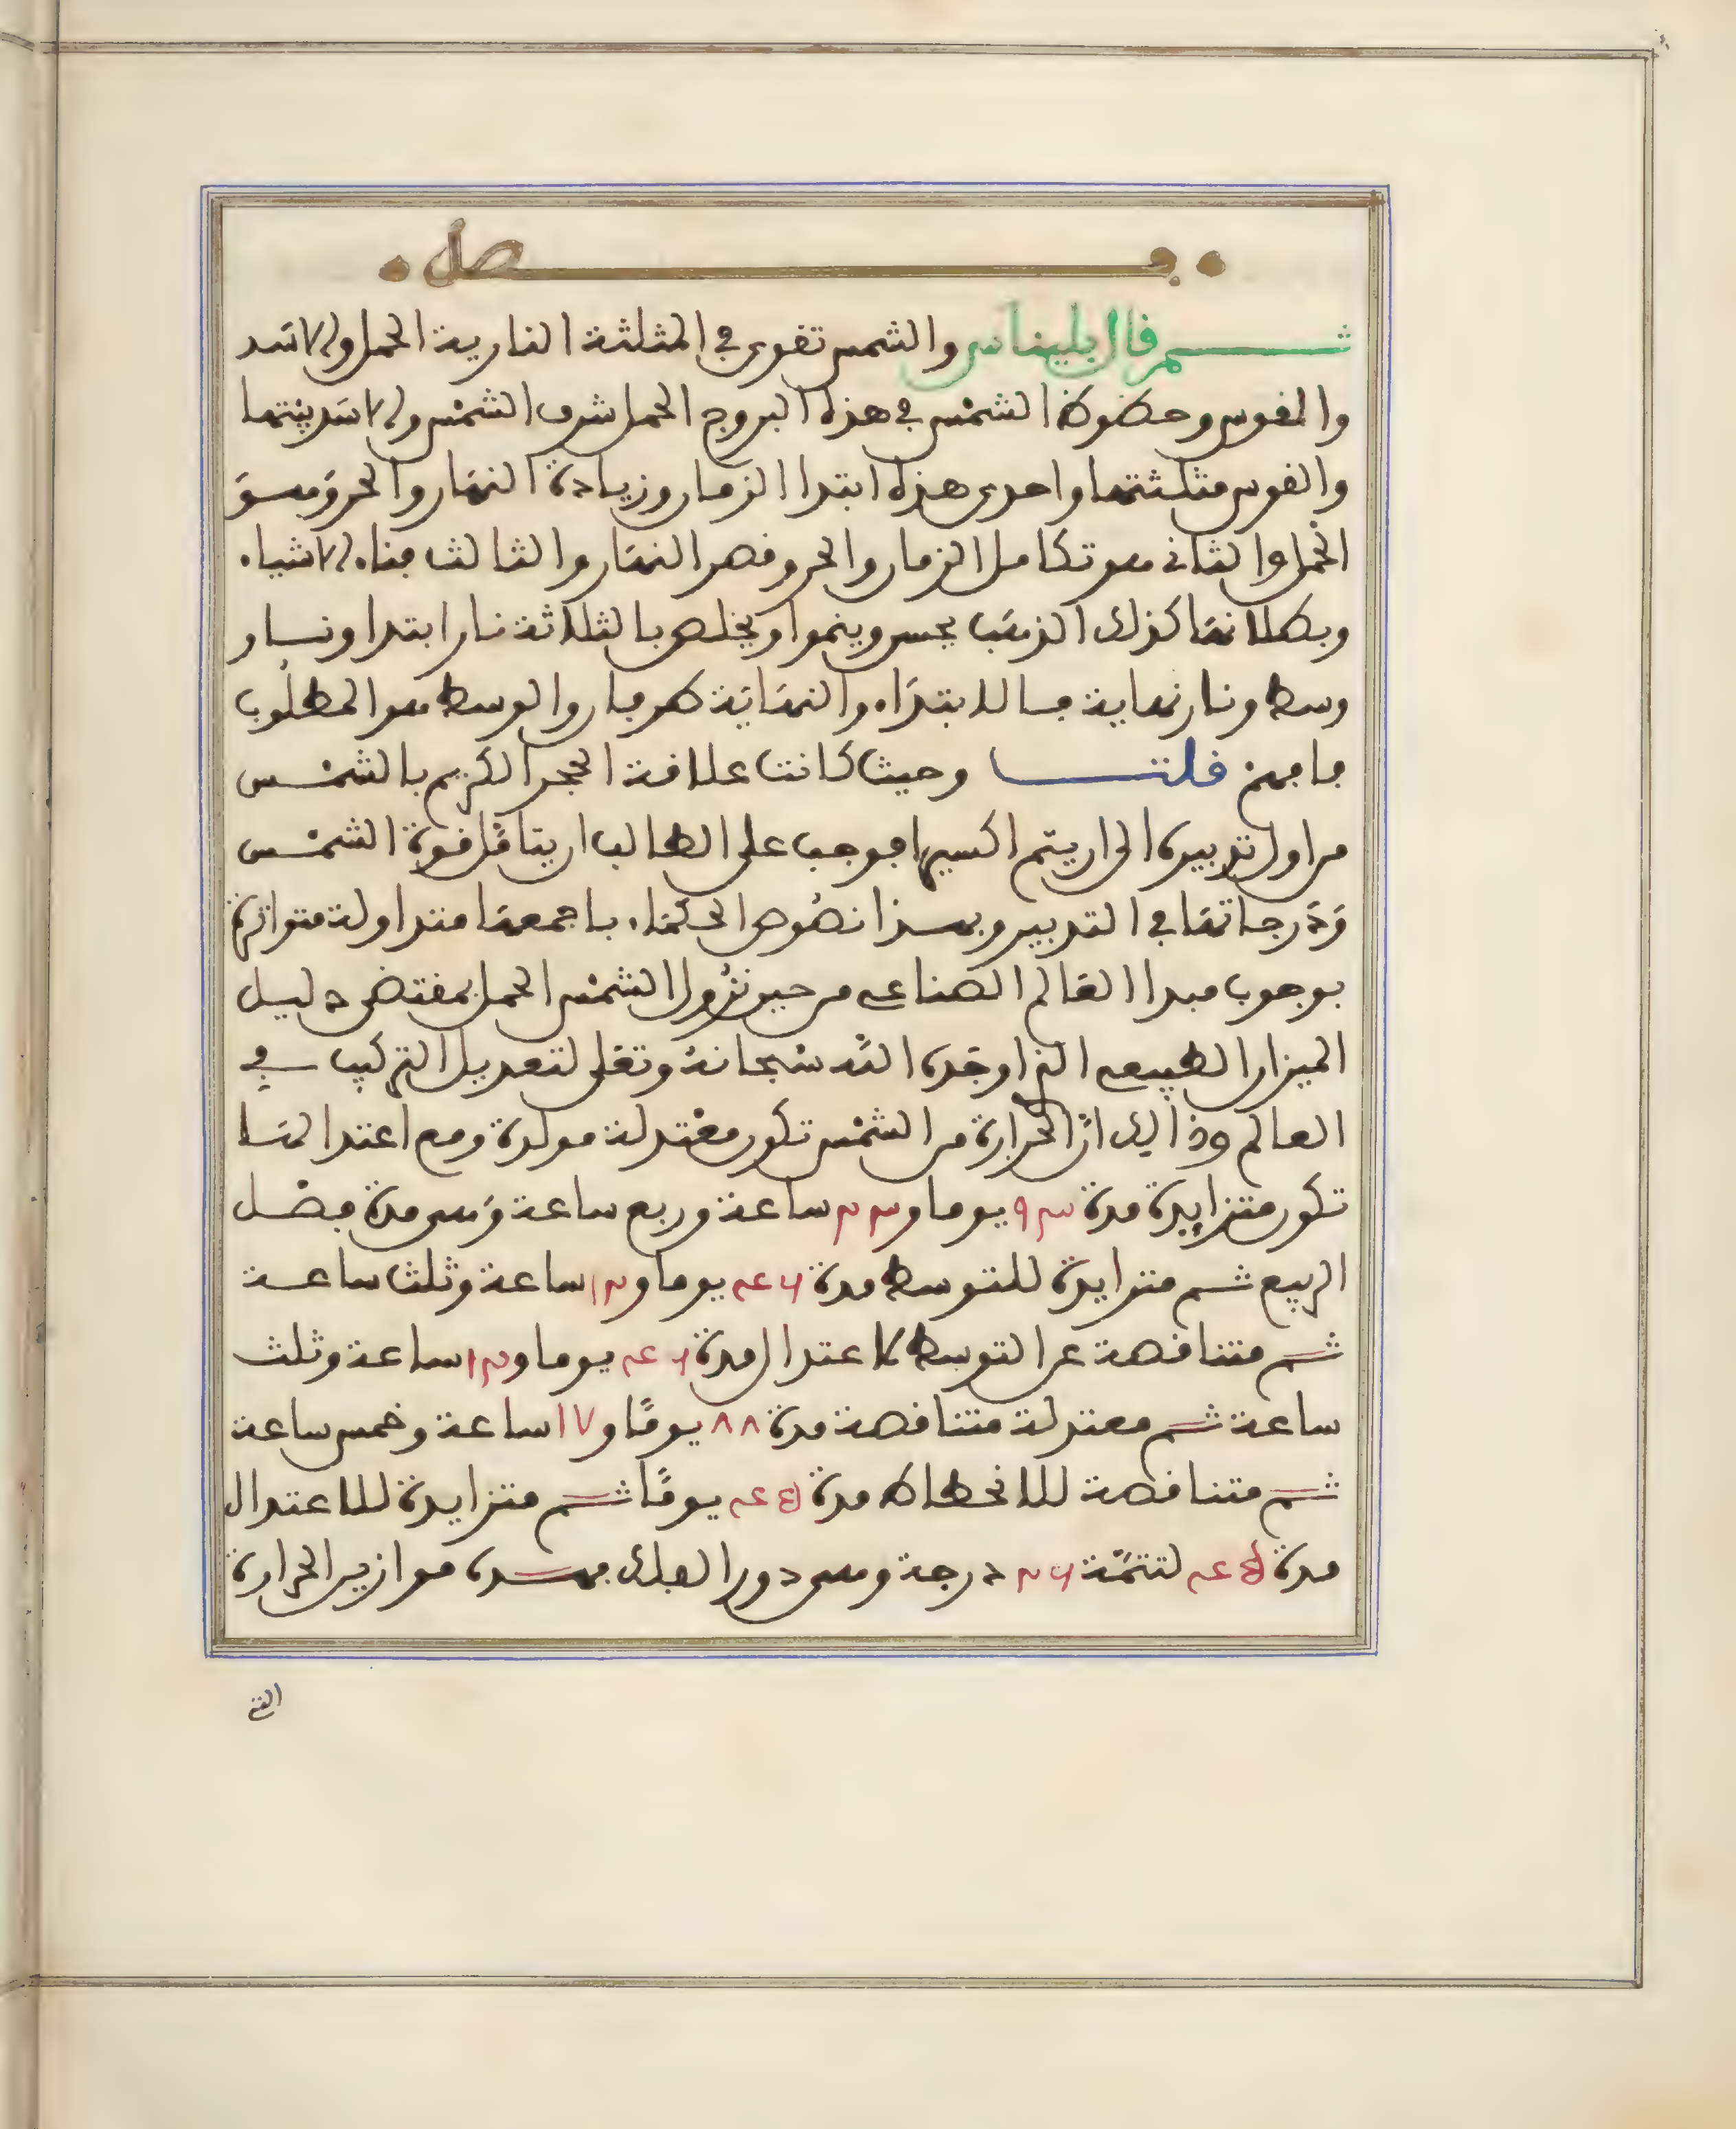 فصل
ثم قال بليناس والشمس تقوى في المثلثة النارية الحمل والاسد
والقوس وحظوظ الشمس في هذه البروج الحمل شرف الشمس والاسد بيتها
والقوس مثلثتها واحدى هذه ابتدا الزمان وزيادة النهار والحر وهو
الحمل والثاني هو تكامل الزمان والحر وقصر النهار والثالث فناء الاشياء
وبطلانها كذلك الذهب يحسن وينموا ويخلص بالثلاثة نار ابتدا ونار
وسط ونار نهاية فالابتداء والنهاية طرفان والوسط هو المطلوب
فافهم قلت وحيث كانت علاقة الحجر الكريم بالشمس
من اول تدبيره الى ان يتم اكسيرا فوجب على الطالب ان يتامل قوة الشمس
ودرجاتها في التدبير وبهذا نصوص الحكماء باجمعها متداولة متواترة
بوجوب مبدا العالم الصناعي من حين نزول الشمس الحمل بمقتضى دليل
الميزان الطبيعي الذي اوجده الله سبحانه وتعلى لتعديل التركيب في
العالم وذالك ان الحرارة من الشمس تكون معتدلة مولدة ومع اعتدالها
تكون متزايدة مدة ٩٣ يوما و٢٣ ساعة وربع ساعة وهي مدة فصل
الربيع ثم متزايدة للتوسط مدة ٤٦ يوما و١٢ ساعة وثلث ساعة
ثم متناقصة عن التوسط لاعتدال مدة ٤٦ يوما و١٢ ساعة وثلث
ساعة ثم معتدلة متناقصة مدة ٨٨ يومًا و١٧ ساعة وخمس ساعة
ثم متناقصة للانحطاط مدة ٤٥ يومًا ثم متزايدة للاعتدال
مدة ٤٥ لتتمة درجة وهي دور الفلك فهذه موازين الحرارة